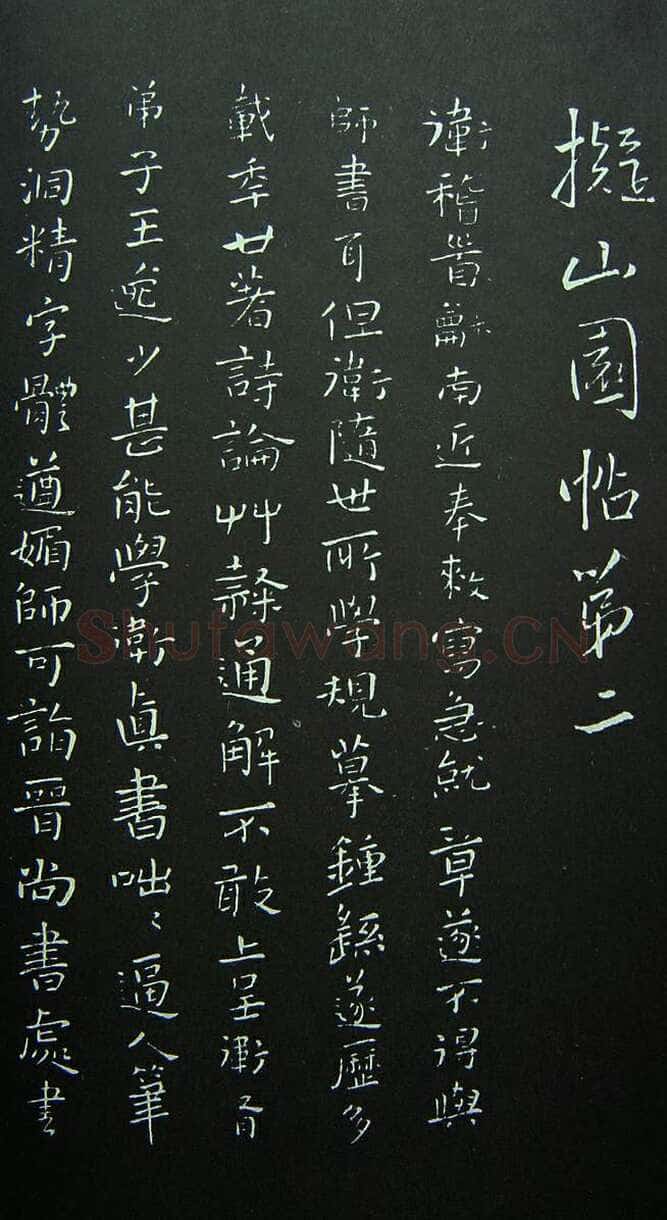 擬山園帖第二
衛稽首龢南近奉敕寫急就章遂不得與
師書耳但衛隨世所學規摹鍾繇遂歷多
載年廿著詩論艸隸通解不敢上呈衛有
弟子王逸少甚能學衛真書咄〻逼人筆
勢洞精字體遒媚師可詣晉尚書處書
Shufawang.CN